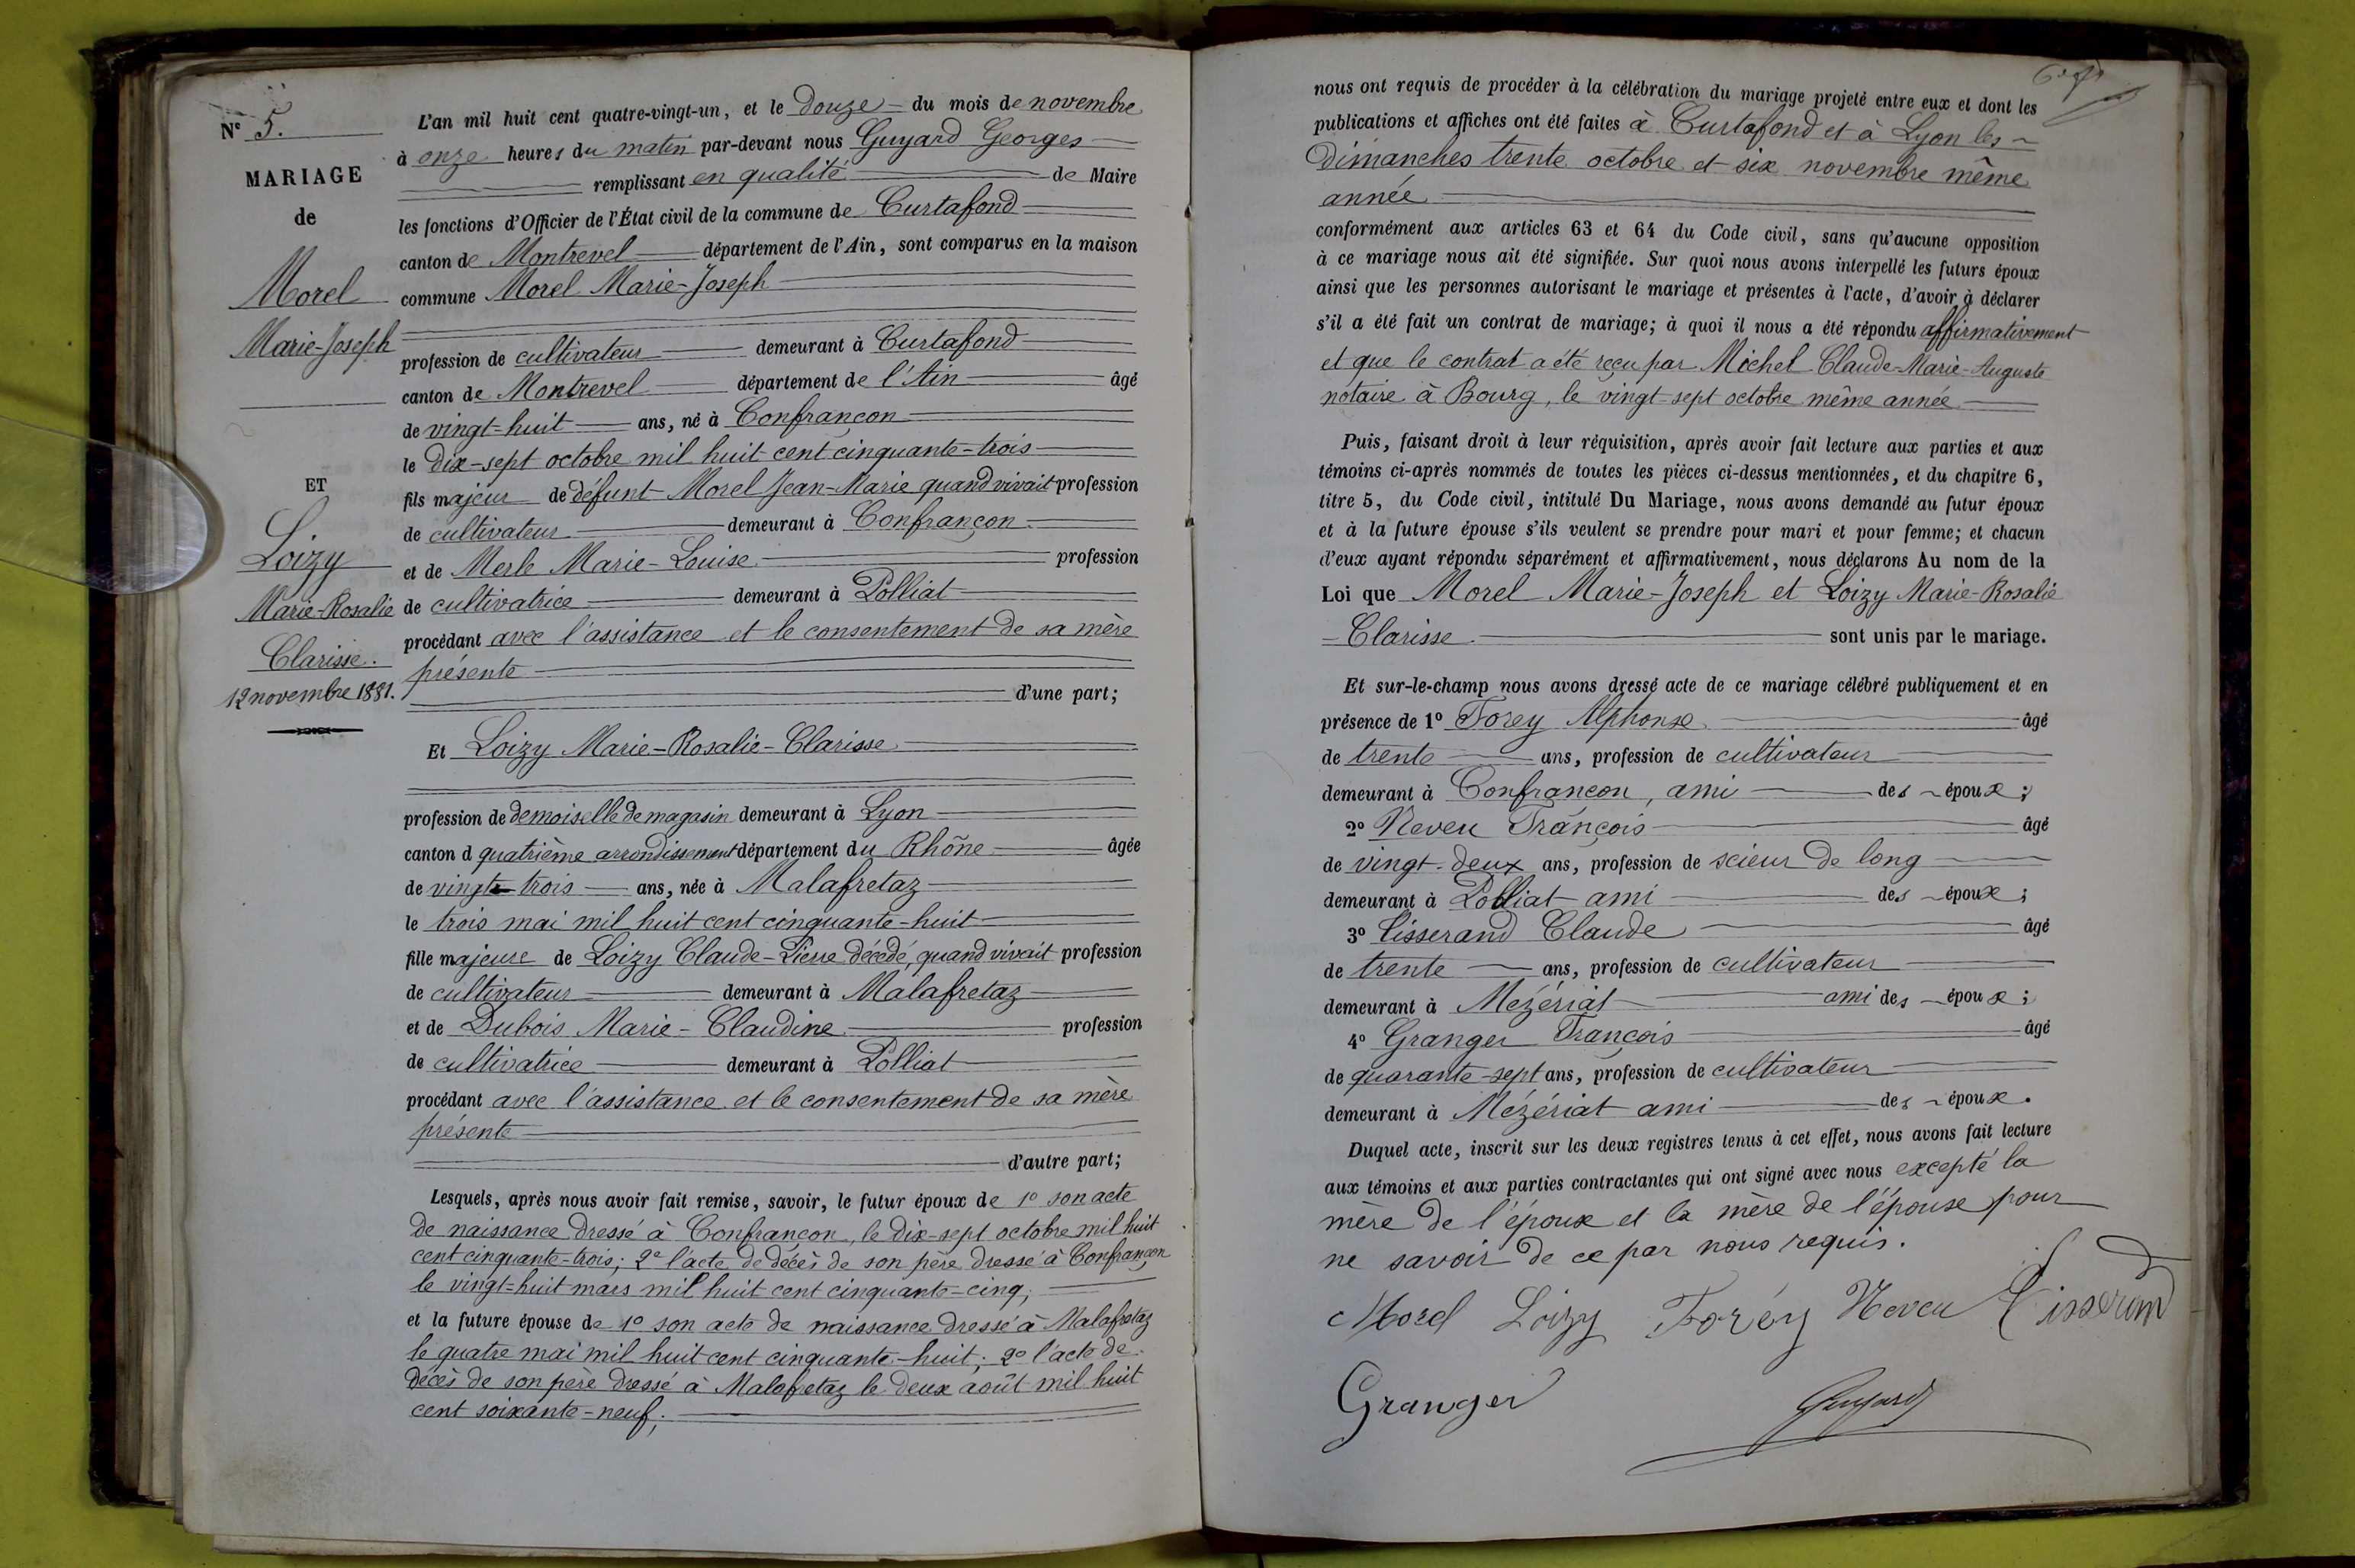 N° 5.
MARIAGE
de
Morel
Marie-Joseph
ET
Loizy
Marie-Rosalie
Clarisse.
12 novembre 1881.
L'an mil huit cent quatre-vingt-un, et le douze du mois de novembre
à onze heures du matin par-devant nous Guyard Georges
remplissant en qualité de Maire
les fonctions d'Officier de l'État civil de la commune de Curtafond
canton de Montrevel département de l'Ain, sont comparus en la maison
commune Morel Marie-Joseph
profession de cultivateur demeurant à Curtafond
canton de Montrevel département de l'Ain âgé
de vingt-huit ans, né à Confrançon
le dix-sept octobre mil huit cent cinquante-trois
fils majeur de défunt Morel Jean-Marie quand vivait profession
de cultivateur demeurant à Confrançon
et de Merle Marie-Louise profession
de cultivatrice demeurant à Polliat
procédant avec l'assistance et le consentement de sa mère
présente
d'une part;
Et Loizy Marie-Rosalie-Clarisse
profession de demoiselle de magasin demeurant à Lyon
canton d quatrième arrondissement département du Rhône âgée
de vingt-trois ans, née à Malafretaz
le trois mai mil huit cent cinquante-huit
fille majeure de Loizy Claude-Pierre décédé, quand vivait profession
de cultivateur demeurant à Malafretaz
et de Dubois Marie-Claudine profession
de cultivatrice demeurant à Polliat
procédant avec l'assistance et le consentement de sa mère
présente
d'autre part;
Lesquels, après nous avoir fait remise, savoir, le futur époux de 1° son acte
de naissance dressé à Confrançon, le dix-sept octobre mil huit
cent cinquante-trois; 2° l'acte de décès de son père dressé à Confrançon
le vingt-huit mars mil huit cent cinquante-cinq;
et la future épouse de 1° son acte de naissance dressé à Malafretaz
le quatre mai mil huit cent cinquante-huit; 2° l'acte de
décès de son père dressé à Malafretaz le deux août mil huit
cent soixante-neuf;
nous ont requis de procéder à la célébration du mariage projeté entre eux et dont les
publications et affiches ont été faites à Curtafond et à Lyon les
dimanches trente octobre et six novembre même
année
conformément aux articles 63 et 64 du Code civil, sans qu'aucune opposition
à ce mariage nous ait été signifiée. Sur quoi nous avons interpellé les futurs époux
ainsi que les personnes autorisant le mariage et présentes à l'acte, d'avoir à déclarer
s'il a été fait un contrat de mariage; à quoi il nous a été répondu affirmativement
et que le contrat a été reçu par Michel Claude-Marie-Auguste
notaire à Bourg, le vingt-sept octobre même année
Puis, faisant droit à leur réquisition, après avoir fait lecture aux parties et aux
témoins ci-après nommés de toutes les pièces ci-dessus mentionnées, et du chapitre 6,
titre 5, du Code civil, intitulé Du Mariage, nous avons demandé au futur époux
et à la future épouse s'ils veulent se prendre pour mari et pour femme; et chacun
d'eux ayant répondu séparément et affirmativement, nous déclarons Au nom de la
Loi que Morel Marie-Joseph et Loizy Marie-Rosalie
-Clarisse sont unis par le mariage.
Et sur-le-champ nous avons dressé acte de ce mariage célébré publiquement et en
présence de 1° Forey Alphonse âgé
de trente ans, profession de cultivateur
demeurant à Confrançon, ami des époux;
2° Neveu François âgé
de vingt-deux ans, profession de scieur de long
demeurant à Polliat ami des époux;
3° Tisserand Claude âgé
de trente ans, profession de cultivateur
demeurant à Mézériat ami des époux;
4° Granger François âgé
de quarante-sept ans, profession de cultivateur
demeurant à Mézériat ami des époux.
Duquel acte, inscrit sur les deux registres tenus à cet effet, nous avons fait lecture
aux témoins et aux parties contractantes qui ont signé avec nous excepté la
mère de l'époux et la mère de l'épouse pour
ne savoir de ce par nous requis.
Morel Loizy Foréy Neveu Tisserand
Granger Guyard